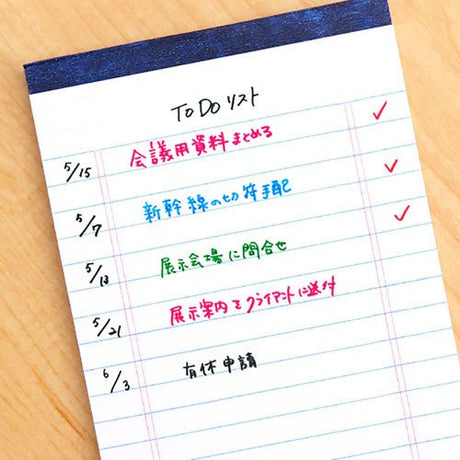 To Do リスト
5/15 会議用資料まとめる ✓
5/7 新幹線の切符手配 ✓
5/13 展示会場に問合せ ✓
5/21 展示案内をクライアントに送付
6/3 有休申請